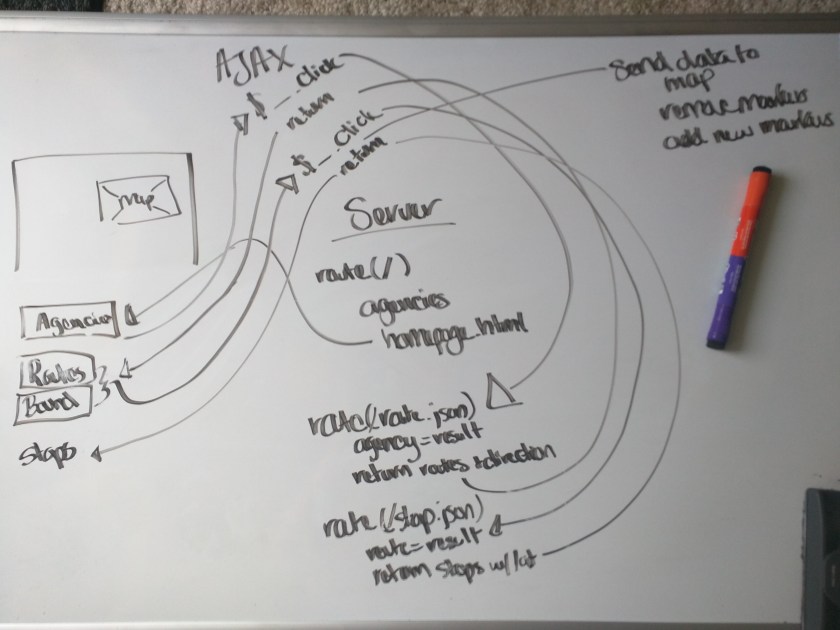 AJAX
$ - . Click
return
$ - . Click
return
Send data to
map
remove markers
add new markers
map
Server
route(/)
agencies
homepage.html
Agencies
Routes
Bound
stops
route(/route.json)
agency=result
return routes +direction
route(/stop.json)
route=result
return stops w/lat